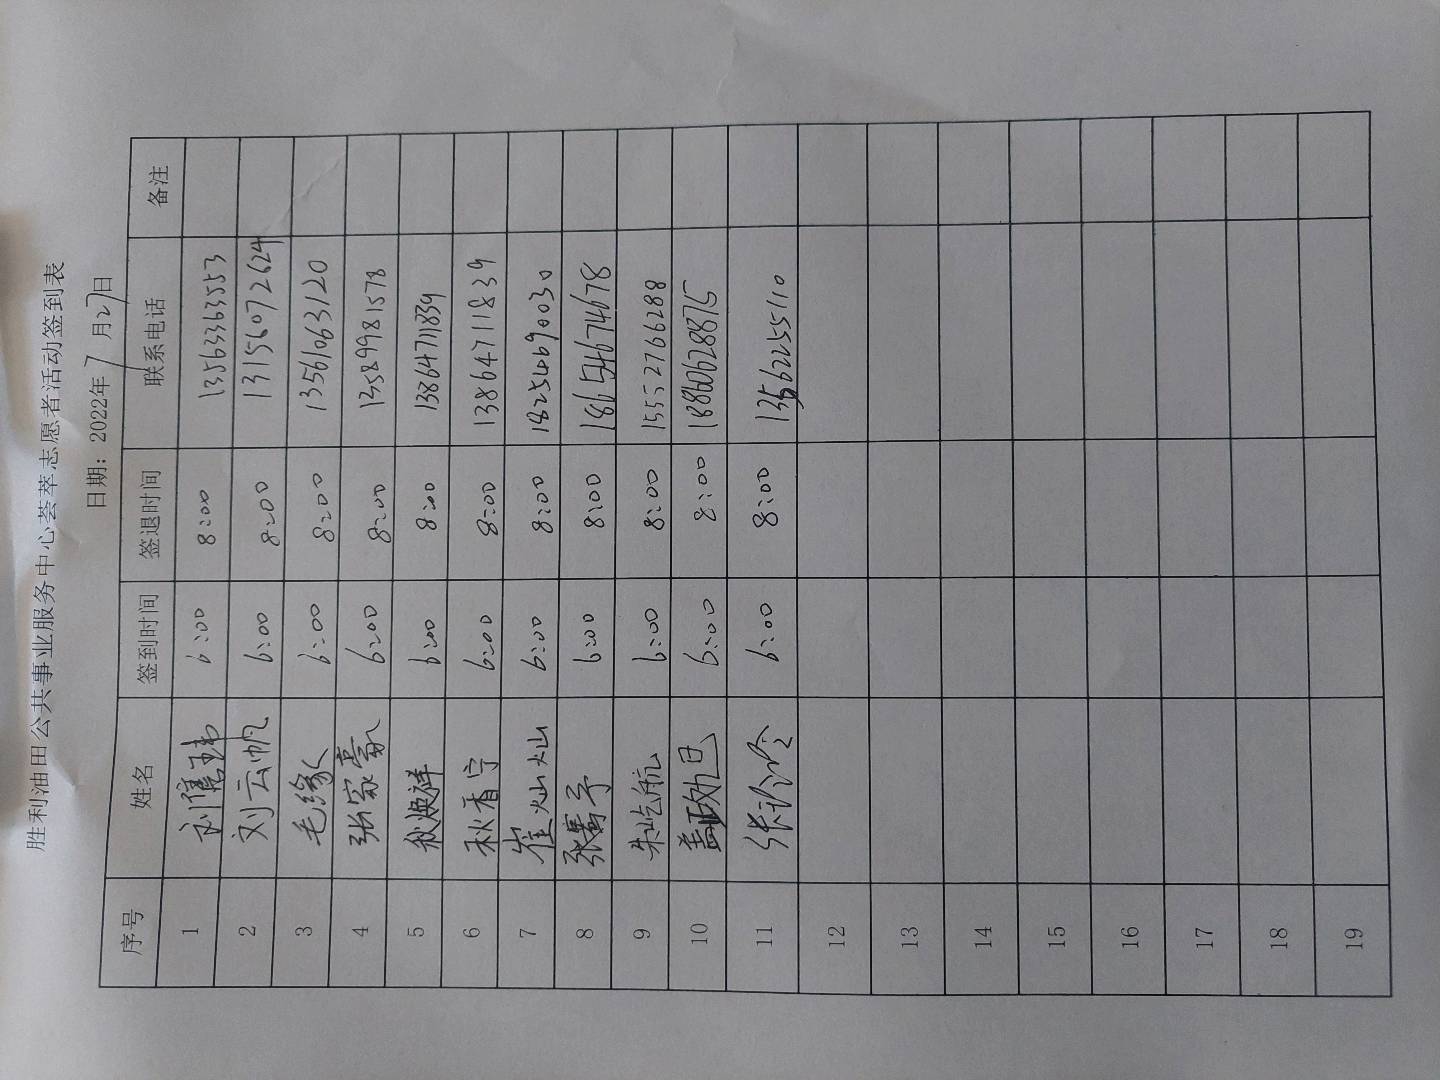 胜利油田公共事业服务中心荟萃志愿者活动签到表
日期：2022年7月27日
序号 姓名 签到时间 签退时间 联系电话 备注
1 刘 6:00 8:00 13563363553
2 刘云帆 6:00 8:00 13156072624
3 毛缘 6:00 8:00 13561063120
4 张家豪 6:00 8:00 13589981578
5 秋焕祥 6:00 8:00 13864711839
6 秋香宁 6:00 8:00 13864711839
7 崔灿灿 6:00 8:00 18254690030
8 张骞予 6:00 8:00 18654674678
9 朱屹航 6:00 8:00 15552766288
10 6:00 8:00 18806628875
11 张诊 6:00 8:00 13562255110
12
13
14
15
16
17
18
19